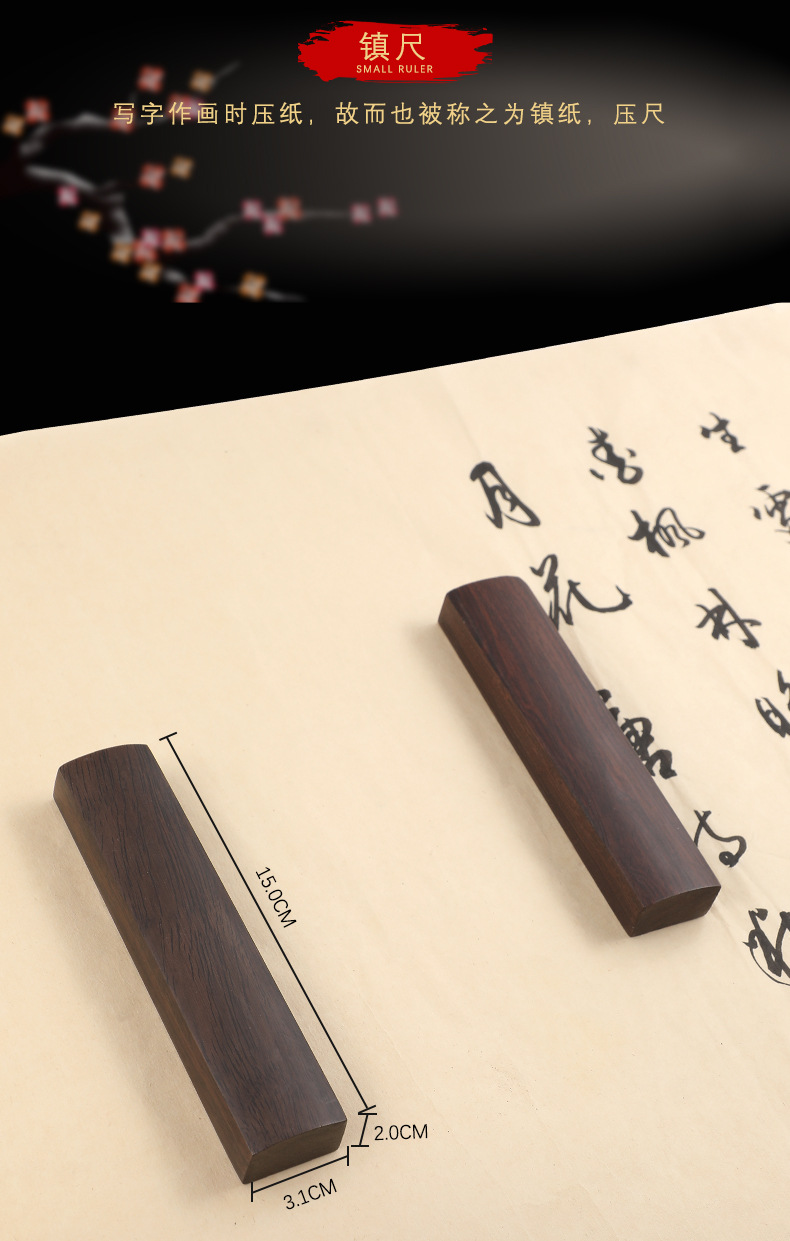 镇尺
SMALL RULER
写字作画时压纸，故而也被称之为镇纸，压尺
月
花
枫
生
林
15.0CM
2.0CM
3.1CM